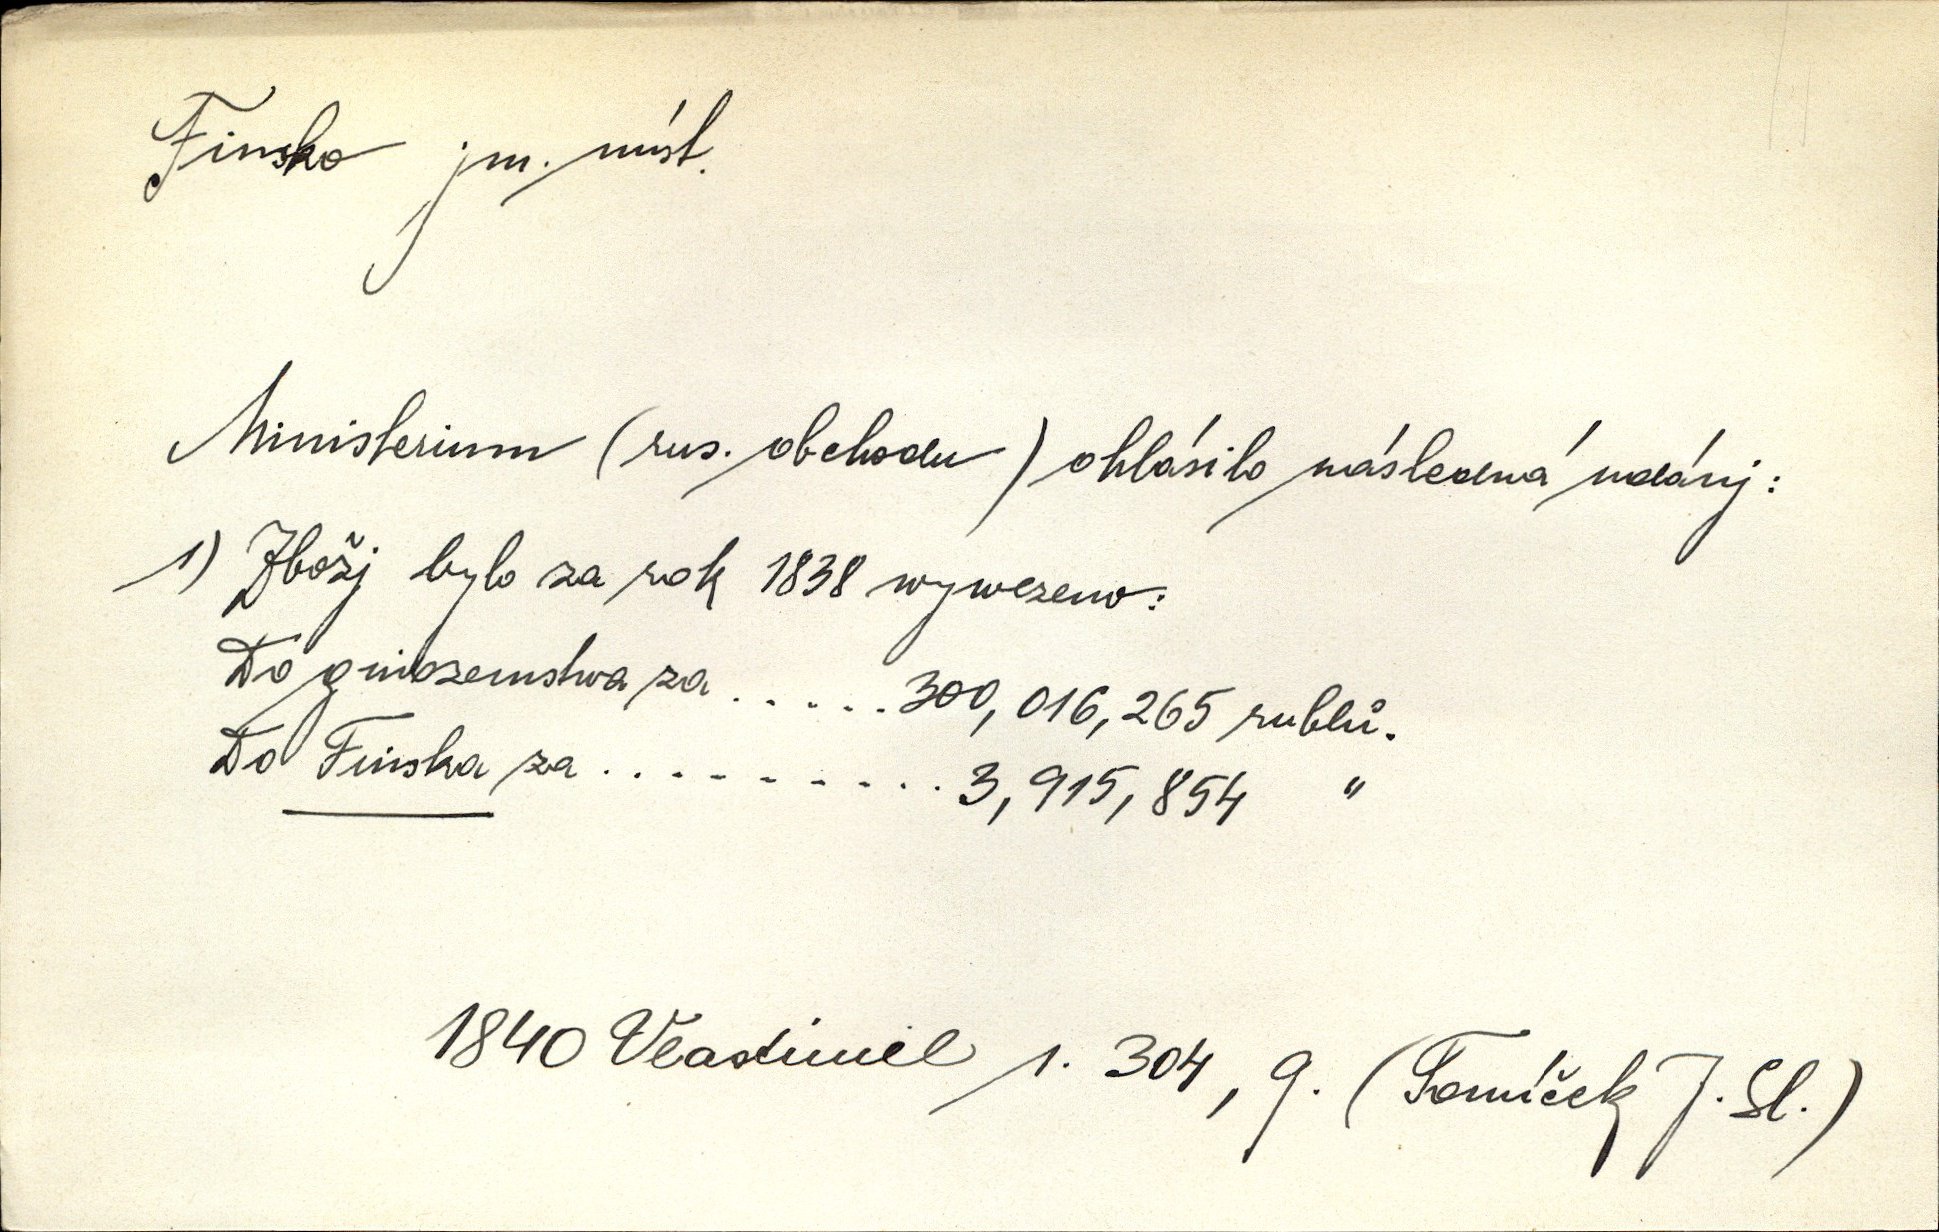 Finsko jm. míst.
Ministerium (rus. obchodu) ohlásilo následná udánj:
1) Zbožj bylo za rok 1838 wywezeno:
Do ginozemstwa za . . . . . 300,016,265 rublů.
Do Finska za . . . . . . . . . . 3,915,854 "
1840 Vlastimil 1. 304, 9. (Tomíček J. Sl.)